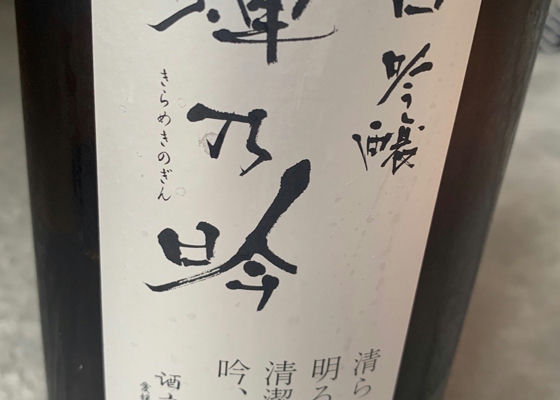 吟醸
輝乃吟
きらめきのぎん
清ら
明る
清潔
吟、
酒